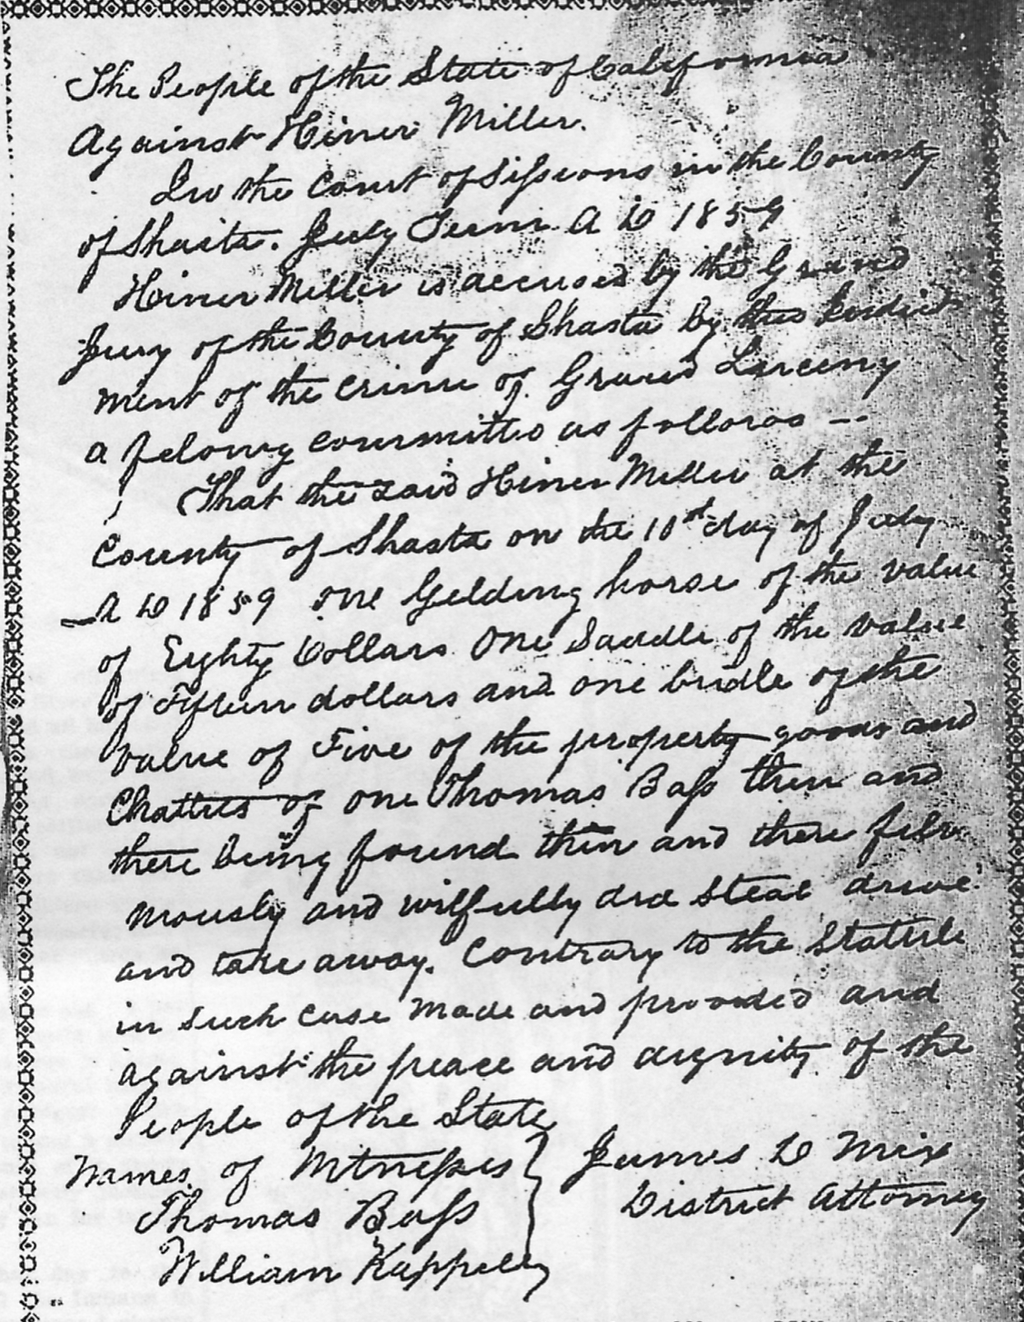 The People of the State of California
Against Hiner Miller.
In the Court of Sessions in the County
of Shasta. July Term A D 1859
Hiner Miller is accused by the Grand
Jury of the County of Shasta by this Indict
ment of the crime of Grand Larceny
a felony committed as follows --
That the said Hiner Miller at the
County of Shasta on the 10th day of July
A D 1859 one Gelding horse of the value
of Eighty Dollars One Saddle of the value
of Fifteen dollars and one bridle of the
value of Five of the property goods and
Chattles of one Thomas Bass then and
there being found then and there felo
niously and wilfully did steal drive
and take away. Contrary to the Statute
in such case made and provided and
against the peace and dignity of the
People of the State
Names of Witnesses
Thomas Bass
William Kappeley
James D Mix
District Attorney